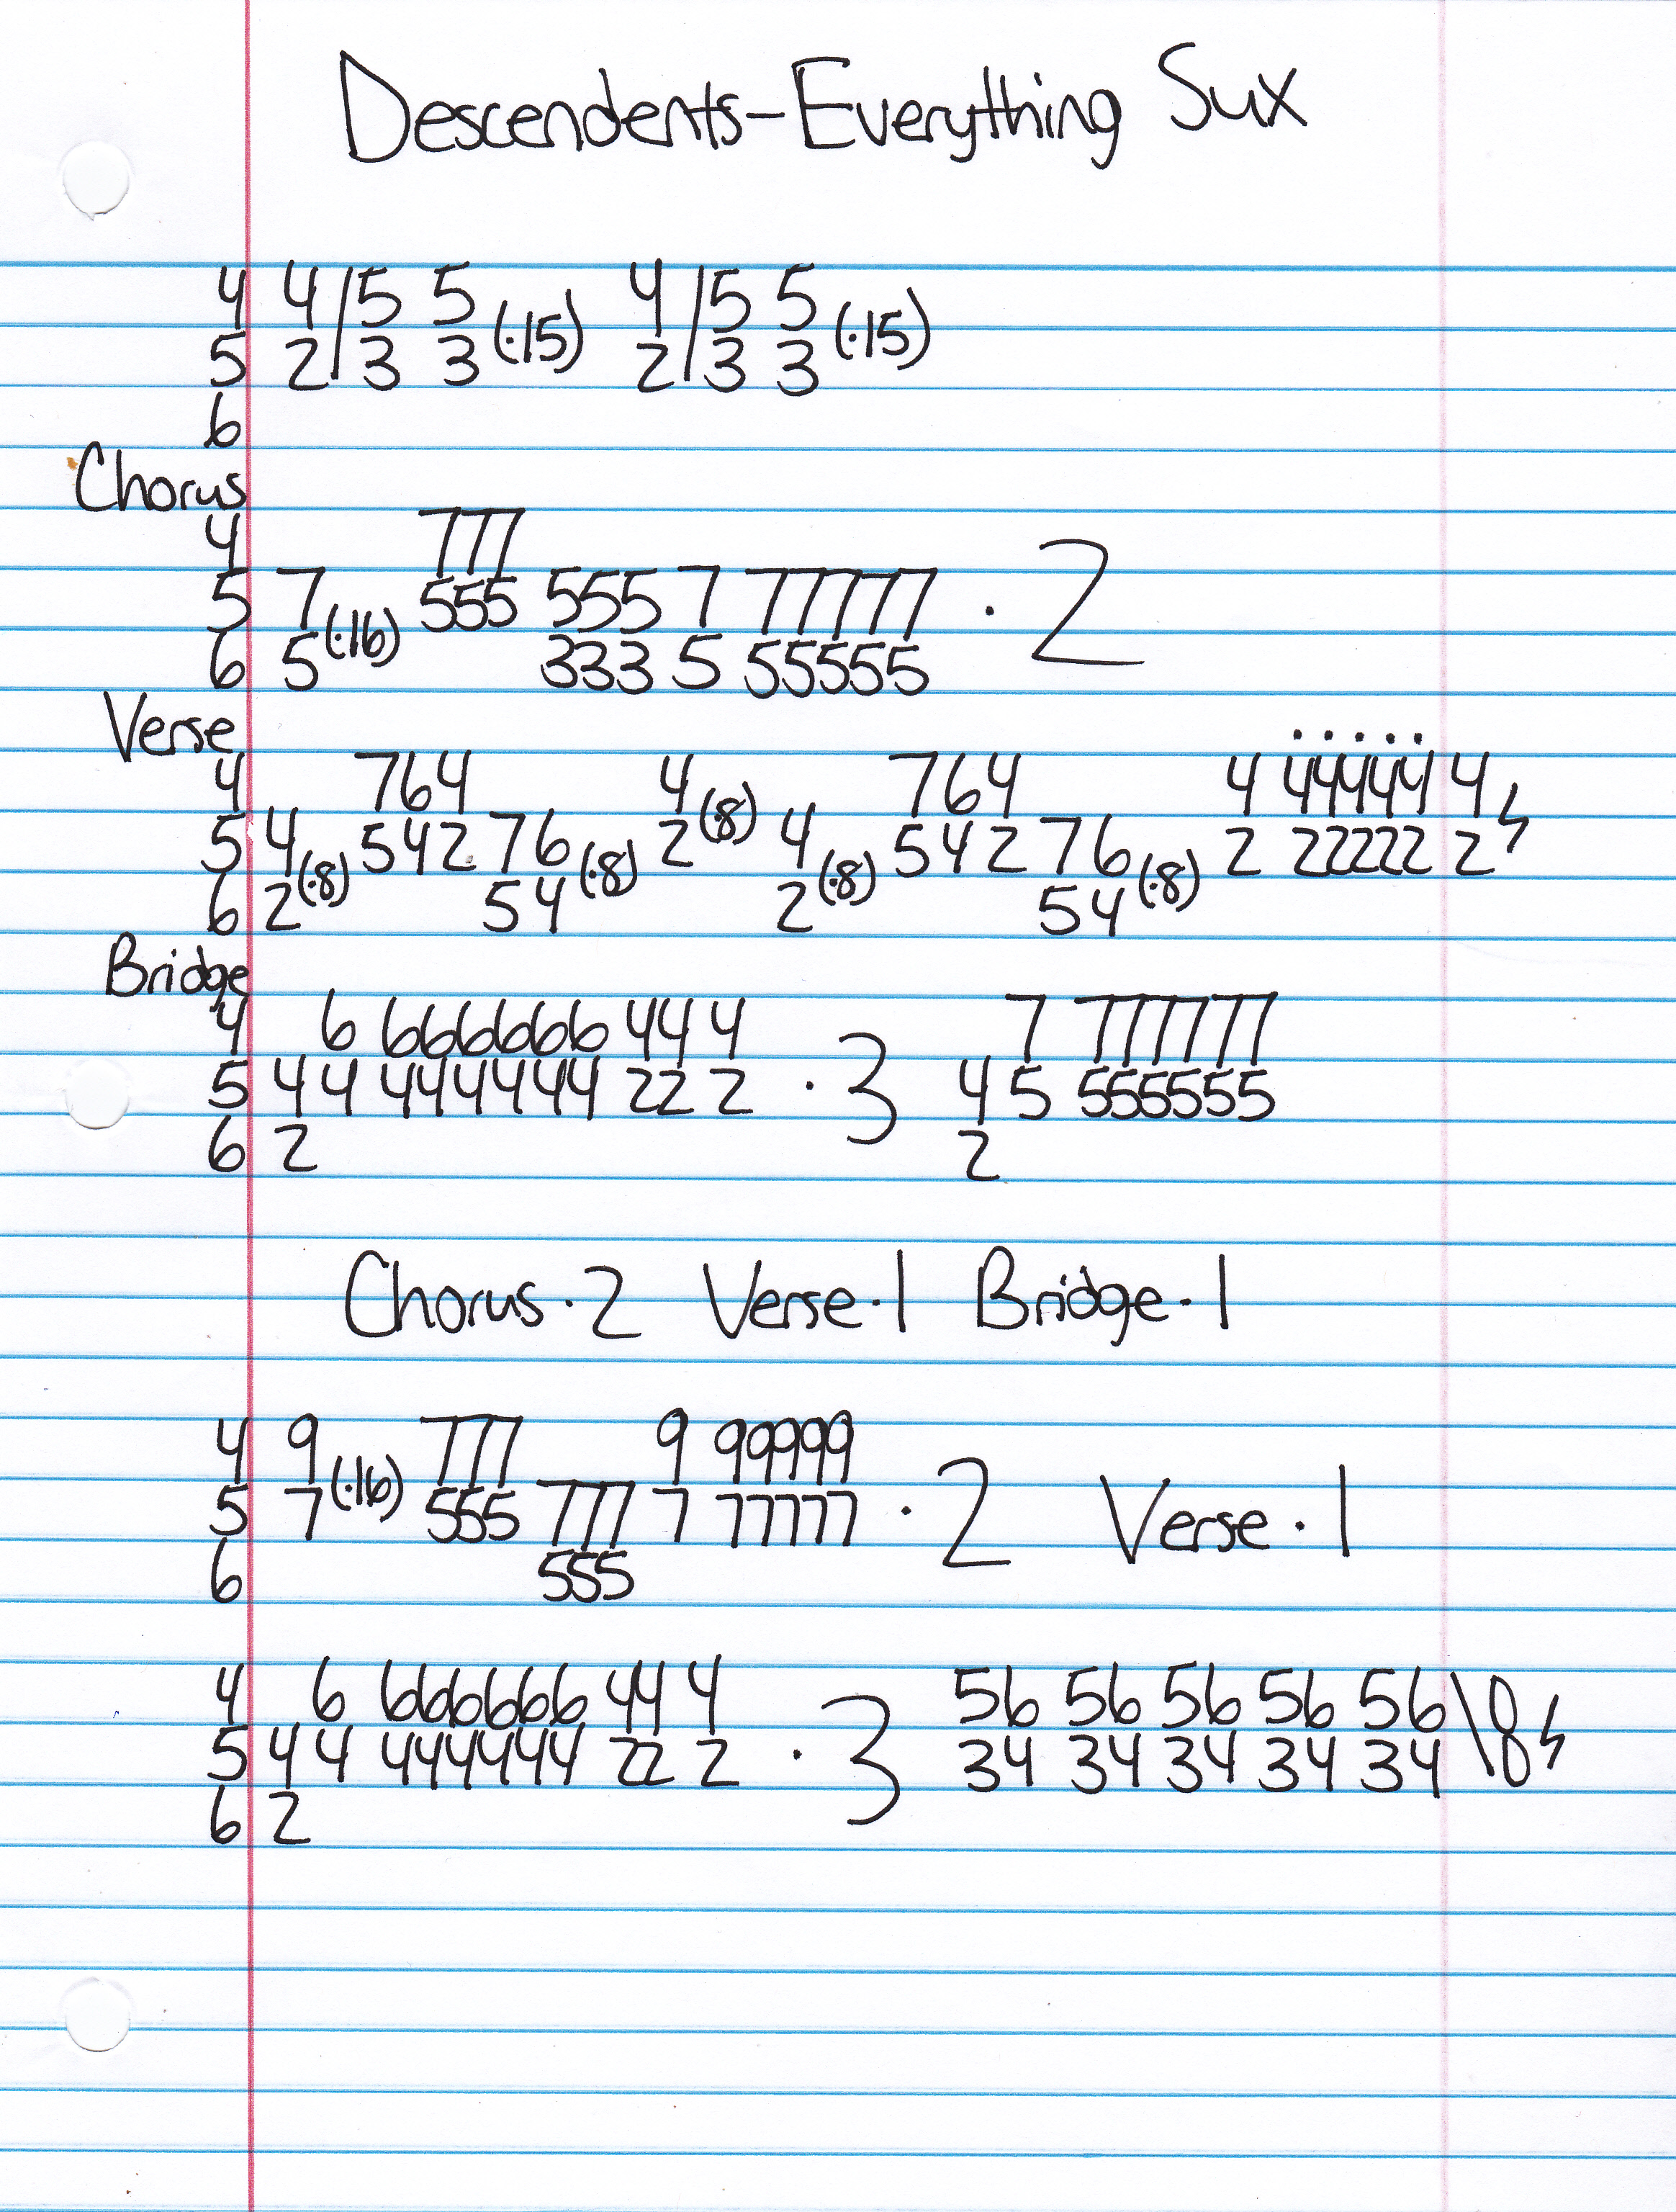 Descendents-Everything Sux
4 4/5 5 4/5 5
5 2/3 3 (·15) 2/3 3 (·15)
6
Chorus
4 777
5 7 (·16) 555 555 7 77777 · 2
6 5 333 5 55555
Verse .....
4 764 4 (·8) 764 4 44444 4
5 4 (·8) 542 76 (·8) 2 4 (·8) 542 76 (·8) 2 22222 2
6 2 54 2 54
Bridge
4 6 666666 44 4 7 777777
5 44 444444 22 2 · 3 45 555555
6 2 2
Chorus·2 Verse·1 Bridge·1
4 9 (·16) 777 9 99999
5 7 555 777 7 77777 · 2 Verse·1
6 555
4 6 666666 44 4 56 56 56 56 56\0
5 44 444444 22 2 · 3 34 34 34 34 34\0
6 2